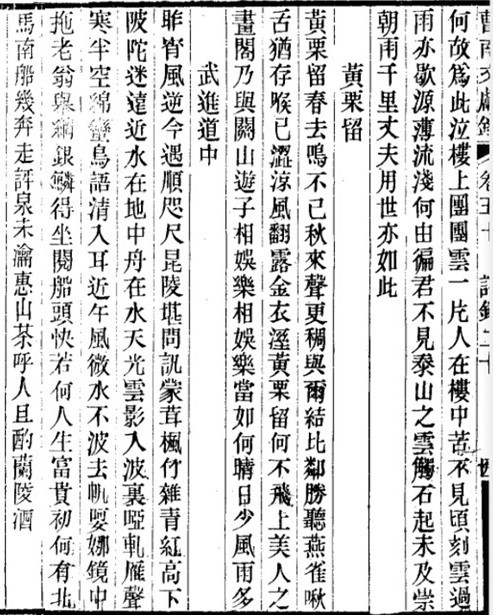 曹南文獻錄 卷五十 詩錄二十
何故為此泣樓上團團雲一片人在樓中若不見頃刻雲過
雨亦歇源薄流淺何由徧君不見泰山之雲觸石起未及崇
朝雨千里丈夫用世亦如此
黃栗留
黃栗留春去鳴不已秋來聲更稠與爾結比鄰勝聽燕雀啾
舌猶存喉已澀涼風翻露金衣溼黃栗留何不飛上美人之
畫閣乃與關山遊子相娛樂相娛樂當如何晴日少風雨多
武進道中
昨宵風逆今遇順咫尺昆陵堪問訊蒙茸楓竹雜青紅高下
陂陀迷遠近水在地中舟在水天光雲影入波裏啞軋雁聲
寒半空綿蠻鳥語清入耳近午風微水不波去帆嫋娜鏡中
拖老翁與網銀鱗得坐閱船頭快若何人生富貴初何有北
馬南船幾奔走評泉未瀹惠山茶呼人且酌蘭陵酒